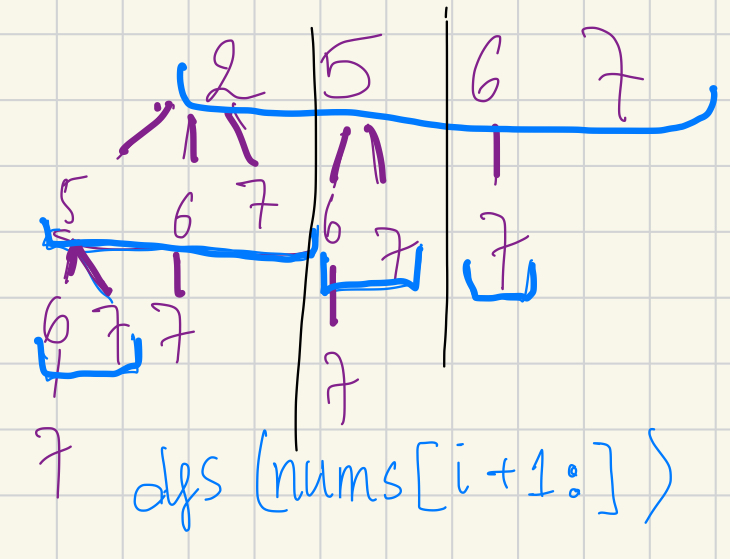 2 5 6 7
5 6 7 6 7 7
6 7 7 7
7
dfs (nums[i+1:])